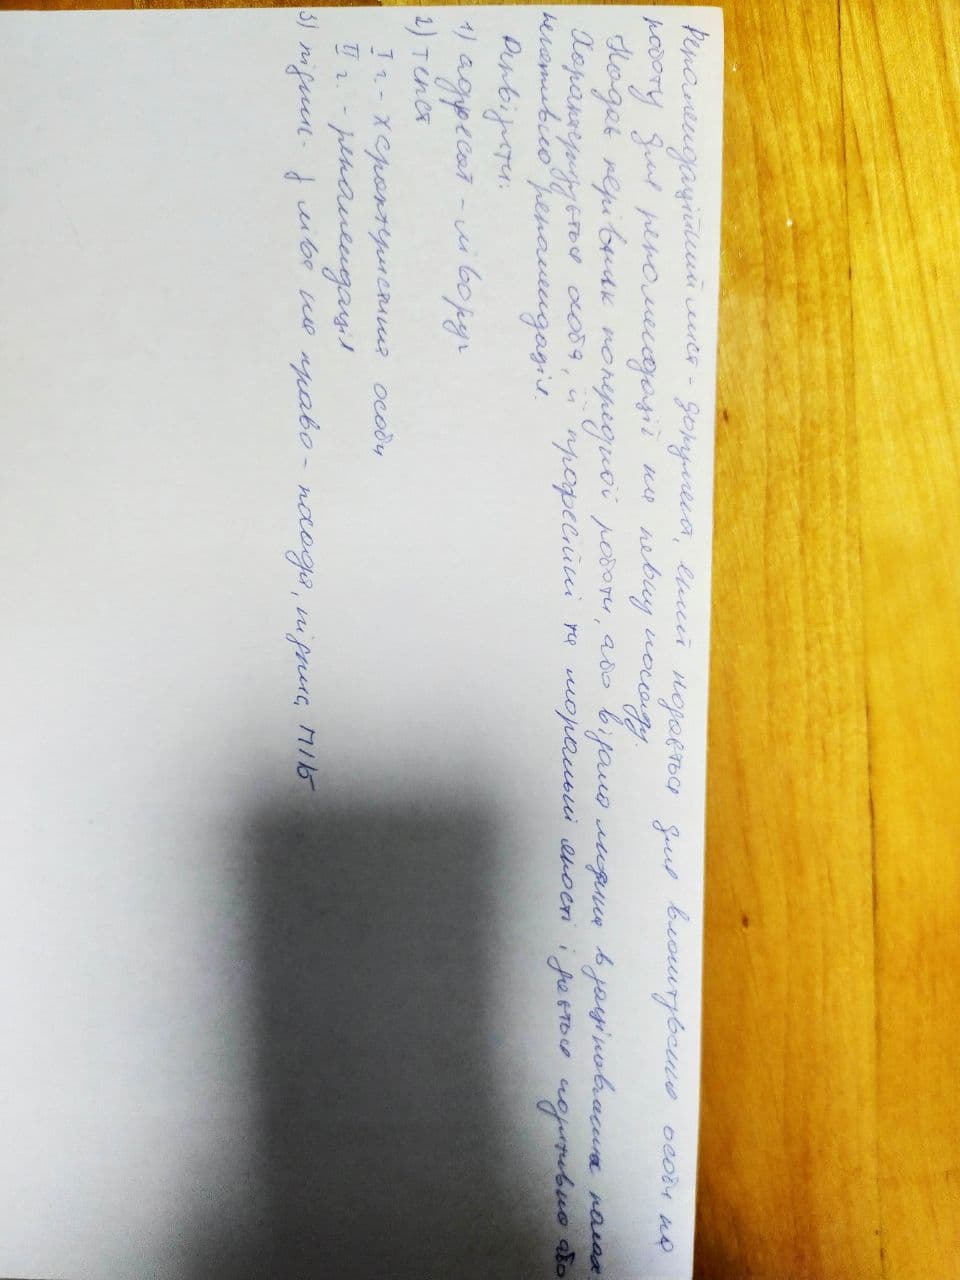 Рекомендаційний лист - документ, який подається для влаштування особи на
роботу для рекомендації на певну посаду.
Надає керівник попередньої роботи, або відома людина в зацікавлених колах
Характеризується особа, її професійні та моральні якості і дається позитивна або
негативна рекомендація.
Реквізити:
1) адресат - ліворуч
2) текст
I ч. - характеристика особи
II ч. - рекомендація
3) підпис - з ліва на право - посада, підпис, ПІБ